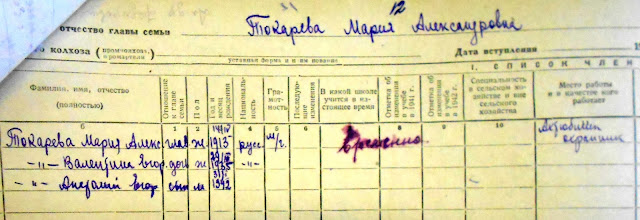 12
отчество главы семьи Токарева Мария Александровна
колхоза (промколхоза, промартели) уставная форма и наименование Дата вступления
I. СПИСОК ЧЛЕН
Фамилия, имя, отчество (полностью) Отношение к главе семьи Пол год и месяц рождения Национальность Грамотность Последующие изменения В какой школе учится в настоящее время Отметка об изменении в учебе в 1941 г. Отметка об изменении в учебе в 1942 г. Специальность в сельском хозяйстве и вне сельского хозяйства Место работы и в качестве кого работает
1 2 3 4 5 6 8 9 10
Токарева Мария Алекс. глав ж. 1913 русс м/г. временно охранник
-"- Валентина Егор. доч ж -"-
-"- Анатолий Егор сын м 1942